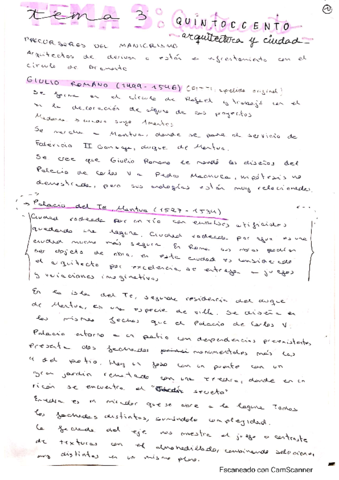 TEMA 3: QUINTOCCENTO
arquitectura y ciudad
PRECURSORES DEL MANIERISMO
Arquitectos de derivan o están en agotamiento con el
círculo de Bramante
GIULIO ROMANO (1499-1546)
Se forma en el círculo de Rafael y trabajó con él
en la decoración de alguno de sus proyectos
Se marcha a Mantua, donde se pone al servicio de
Federico II Gonzaga, duque de Mantua.
Se cree que Giulio Romano le mandó los diseños del
Palacio de Carlos V a Pedro Machuca, hipótesis no
demostrada, pero sus analogías están muy relacionadas.
Palacio del Te Mantua (1527-1534)
Ciudad rodeada por un río con embalses artificiales
quedando una laguna. Ciudad rodeada por agua es una
ciudad mucho más segura. En Roma sus obras podían
ser objeto de crítica. En esta ciudad es considerado
el arquitecto por excelencia se entrega a juegos
y variaciones imaginativas
En la isla del Te, segunda residencia del duque
de Mantua, es una especie de villa. Se diseña en
las mismas fechas que el Palacio de Carlos V
Palacio entorno a un patio con dependencias preexistentes.
Presenta dos fachadas monumentales más las
4 del patio. Hay un foso con un puente con un
gran jardín rematado con una exedra, donde en un
rincón se encuentra el "jardín secreto"
Exedra es un mirador que se abre a la laguna. Todas
las fachadas distintas, aumentando complejidad.
La fachada del eje nos muestra el juego o contraste
de texturas con el almohadillado, combinando soluciones
muy distintas en un mismo plano.
Escaneado con CamScanner